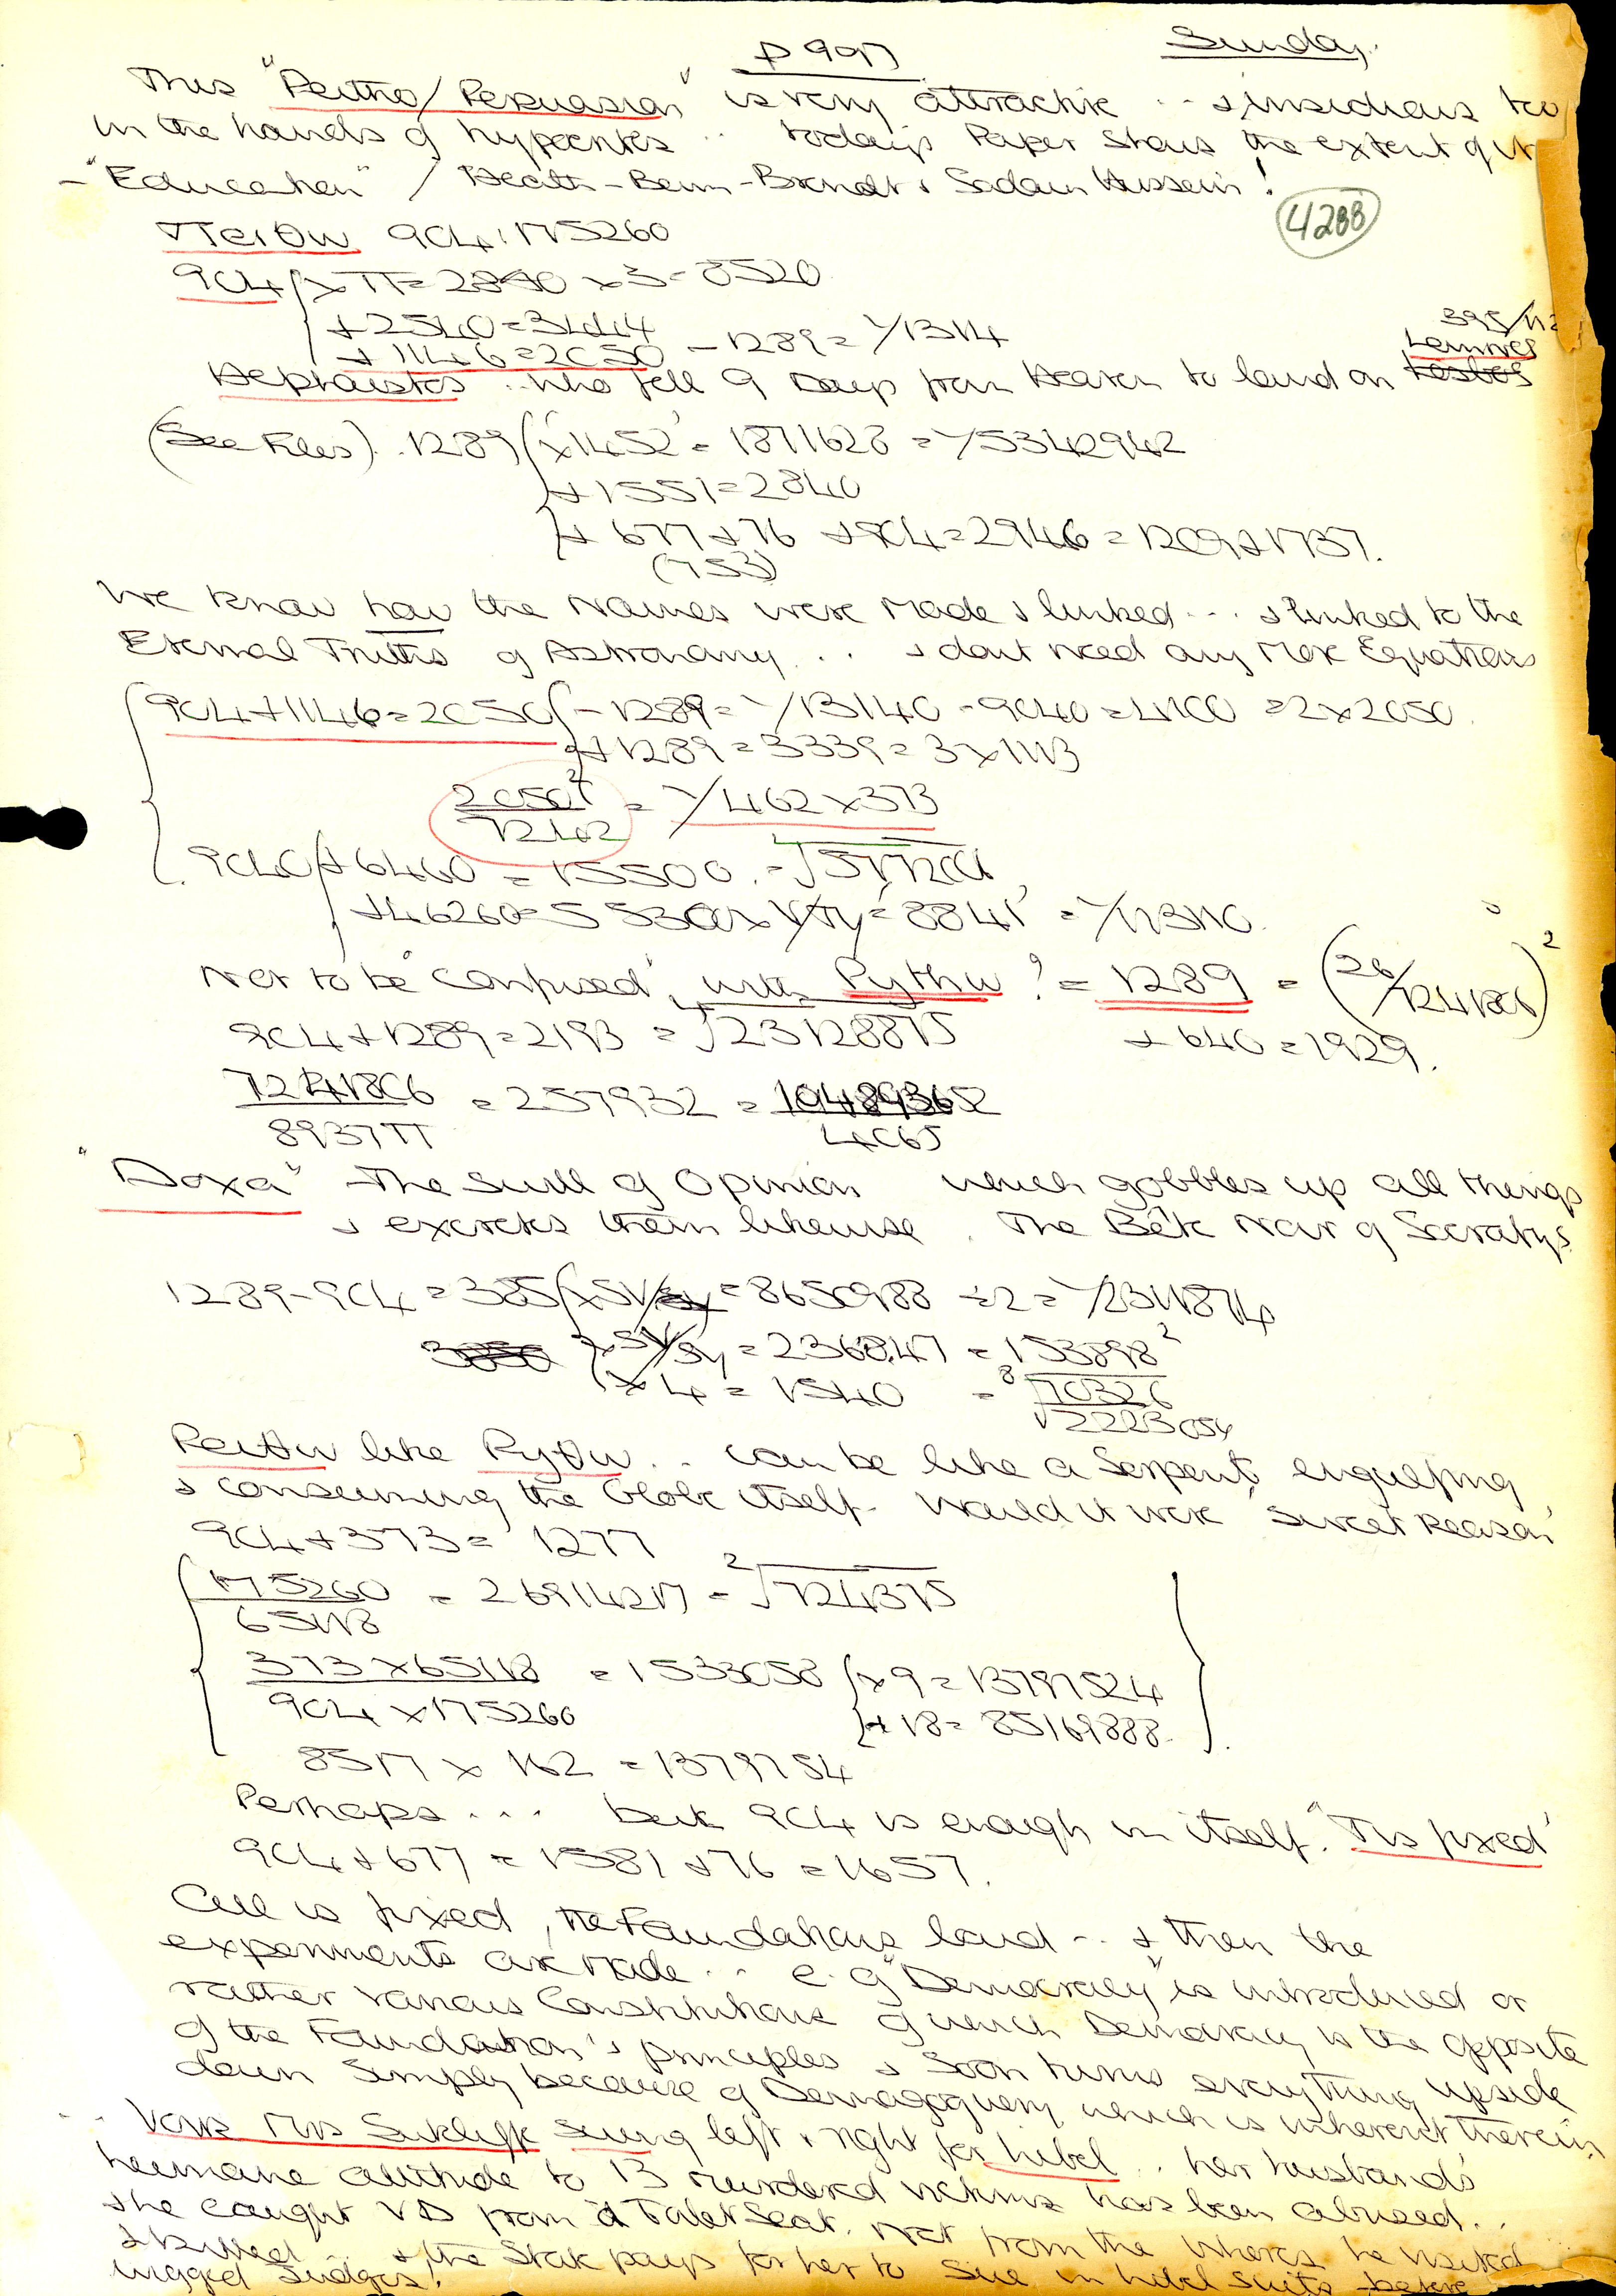 P 907
Sunday.
This "Peitho/Persuasion" is very attractive .. & insidious too
in the hands of hypocrites .. today's Paper shows the extent of it
- "Education" / Heath - Benn - Brandt & Sadam Hussein!
4288
Πειθω 904, 175260
904 (x π = 2840 x 3 = 8520
+ 2540 = 3444
+ 1146 = 2050 - 1289 = 1/1314
395/112
Lemnos
Hephaistos .. who fell 9 Days from Heaven to land on Lesbos
(See Files) .. 1289 (x 1452 = 1871628 = 1/5342942
+ 1551 = 2840
+ 677 + 76 + 904 = 2946 = 1209 + 1737.
(753)
We know how the Names were Made & linked ... & linked to the
Eternal Truths of Astronomy ... & dont need any More Equations
904 + 1146 = 2050 (- 1289 = 1/13140 - 9040 = 4100 = 2 x 2050.
+ 1289 = 3339 = 3 x 1113
2050² = 1/462 x 373
7242
9040 (+ 6460 = 15500 =
+ 46260 = 55300 x = 8841 = 1/113110.
Not to be 'confused' with Pythw! = 1289 =
904 + 1289 = 2193 = √23128875
+ 640 = 1929.
7241806 = 257932 = 104893652
8937π 4065
"Doxa" - The swill of Opinion which gobbles up all things
& excretes them likewise. The Bête Noir of Socratys.
1289 - 904 = 385 = 8650988 ÷ 2 = 1/2311874
= 236847 = 153898²
(x 4 = 1540 = 70326
2223054
Peithw like Pythw .. can be like a Serpent engulfing
& consuming the Globe itself - Would it were 'Sweet Reason'
904 + 373 = 1277
175260 = 26914217 = ²√724375
65118
373 x 65118 = 1533058 (x 9 = 13797524
904 x 175260 + 18 = 85169888.
8517 x 162 = 1379754
Perhaps .... but 904 is enough in itself. "Tis fixed'
904 + 677 = 1581 + 76 = 1657.
All is fixed, the Foundations laid .. & then the
experiments are Made ... e.g "Democracy" is introduced or
rather various Constitutions of which Democracy is the opposite
of the Foundation's principles & soon turns everything upside
down simply because of Demagoguery which is inherent therein
Mrs Sutcliffe suing left & right for libel .. her husband's
humane attitude to 13 murdered victims has been abused ..
she caught VD from a Toilet Seat. not from the Whores he visited
& killed ... & the State pays for her to sue in libel suits before
wigged Judges!